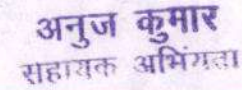 अनुज कुमार
सहायक अभिंयता